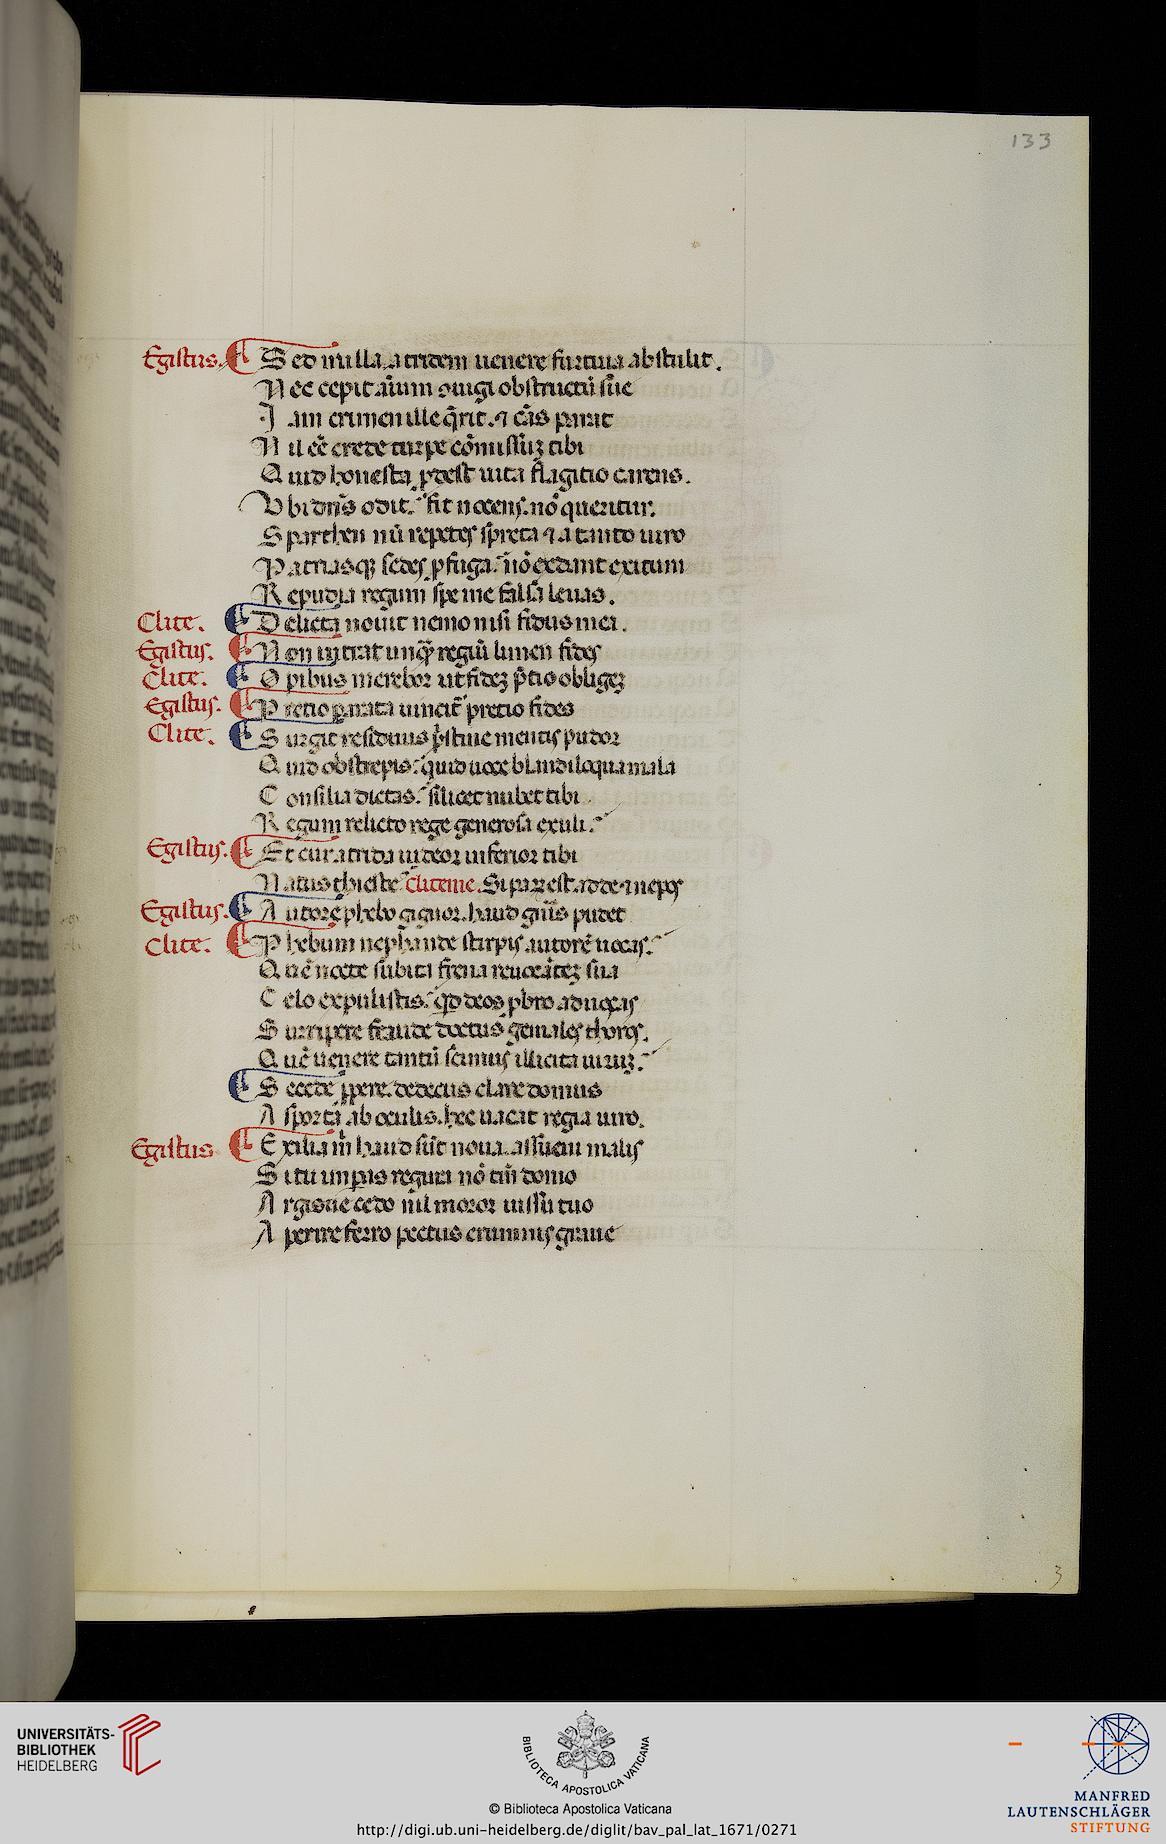 133
Egistus. Sed nulla atridem uenere furtiua abstulit.
Nec cepit aĩum ɔiugi obstructũ sue
Iam crimen ille q̃rit. ⁊ cãs parat
Nil eẽ crede turpe cõmissũʒ tibi
Quid honesta ꝓdest uita flagitio carens.
Vbi dñs odit. fit nocens. nõ queritur.
Sparthen nũ repetes spreta ⁊ a tanto uiro
Patriasqʒ sedes ꝓfuga. nõ dant exitum
Repudia regum spe me falsa leuas.
Clite. Delicta nouit nemo nisi fidus mei.
Egistus. Non intrat unqᷓ regiũ limen fides
Clite. Opibus merebor ut fideʒ p̃tio obligeʒ
Egistus. Pretio ꝑarata uincit᷑ pretio fides
Clite. Surgit residuus p̃stine mentis pudor
Quid obstrepis. quid uoce blandiloqua mala
Consilia dictas. silicet nubet tibi
Regum relicto rege generosa exuli.
Egistus. Et cur atrida uideor inferior tibi
Natus thieste cliteme. Si parũ est. adde ⁊ nepos
Egistus. Autore phebo gignor. haud gñis pudet
Clite. Phebum nephande stirpis autorẽ uocas.
Quẽ nocte subita frena reuocãteʒ sua
Celo expulistis. qͥd deos ꝓbro aduocas
Surripere fraude doctus geniales thoros.
Quẽ uenere tantũ scimus illicita uirũ.
Secede ꝓpere. dedecus clare domus
Asporta ab oculis. hec uacat regia uiro.
Egistus Exilia m̃ haud sũt noua. assueui malis
Si tu imperas regina nõ tm̃ domo
Argisue cedo nil moror iussu tuo
Aperire ferro pectus erumnis graue
3
UNIVERSITÄTS-
BIBLIOTHEK
HEIDELBERG
BIBLIOTECA APOSTOLICA VATICANA
© Biblioteca Apostolica Vaticana
http://digi.ub.uni-heidelberg.de/diglit/bav_pal_lat_1671/0271
MANFRED
LAUTENSCHLÄGER
STIFTUNG